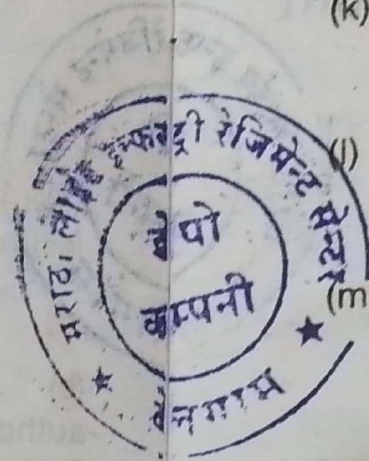 (k)
(l)
(m
मराठा लाईट इन्फन्ट्री रेजिमेन्ट सेन्टर
डेपो
कम्पनी
बेलगाम